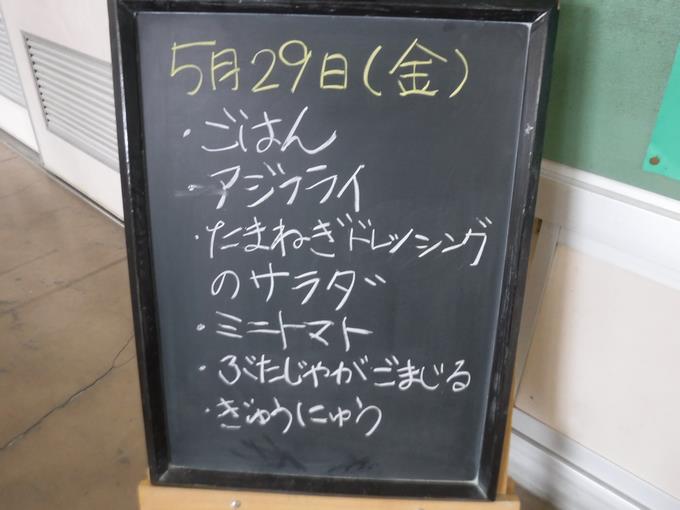 5月29日(金)
・ごはん
・アジフライ
・たまねぎドレッシング
のサラダ
・ミニトマト
・ぶたじゃがごまじる
・ぎゅうにゅう